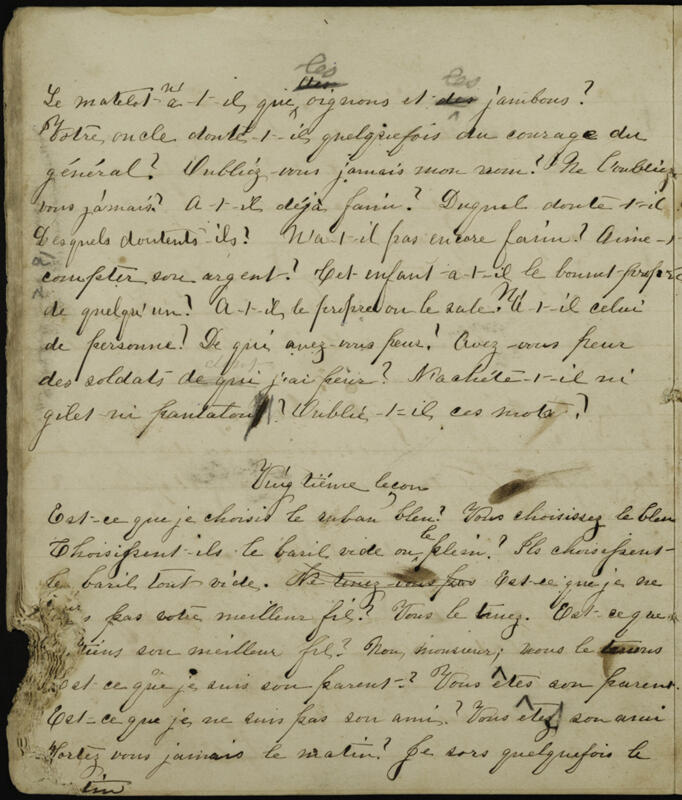 les les
Le matelot n'a-t-il que des oignons et des jambons?
Votre oncle doute-t-il quelquefois du courage du
général? Oubliez-vous jamais mon nom? Ne l'oubliez
vous jamais? A-t-il déjà faim? Duquel doute-t-il?
Desquels doutents-ils? N'a-t-il pas encore faim? Aime-t-
compter son argent? Cet enfant a-t-il le bonnet propre
de quelqu'un? A-t-il le propre ou le sale? N'a-t-il celui
de personne? De qui avez-vous peur? Avez-vous peur
des soldats de qui j'ai peur? N'achéte-t-il ni
gilet ni pantalon? Oublié-t-il ces mots?
Vingtiéme leçon
Est-ce que je choisis le ruban bleu? Vous choisissez le bleu
Choisissent-ils le baril vide ou le plein? Ils choisissent
le baril tout vide. Ne tenez-vous pas Est-ce que je ne
pas votre meilleur fil? Vous le tenez. Est-ce que
tiens son meilleur fil? Non, monsieur, vous le tenons
Est-ce que je suis son parent? Vous êtes son parent.
Est-ce que je ne suis pas son ami? Vous êtes son ami
Sortez vous jamais le matin? Je sors quelquefois le
tin